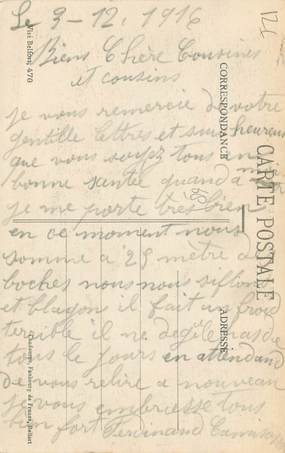 Le 3-12, 1916
Biens Chère Cousines
et cousins
je vous remercie de votre
gentille lettres et suis heureux
que vous soyez tous en
bonne santée quand a moi
je me porte très bien
en ce moment nous
somme a 25 mètre des
boches nous nous sifflon
et blagon il fait un froid
terible il ne degèle pas de
tous le jours en attendand
de vous relire a nouveau
je vous embrasse tous
bien fort Ferdinand
CORRESPONDANCE
CARTE POSTALE
ADRESSE
Visé Belfort, 478
Chadourne, Faubourg de France, Belfort